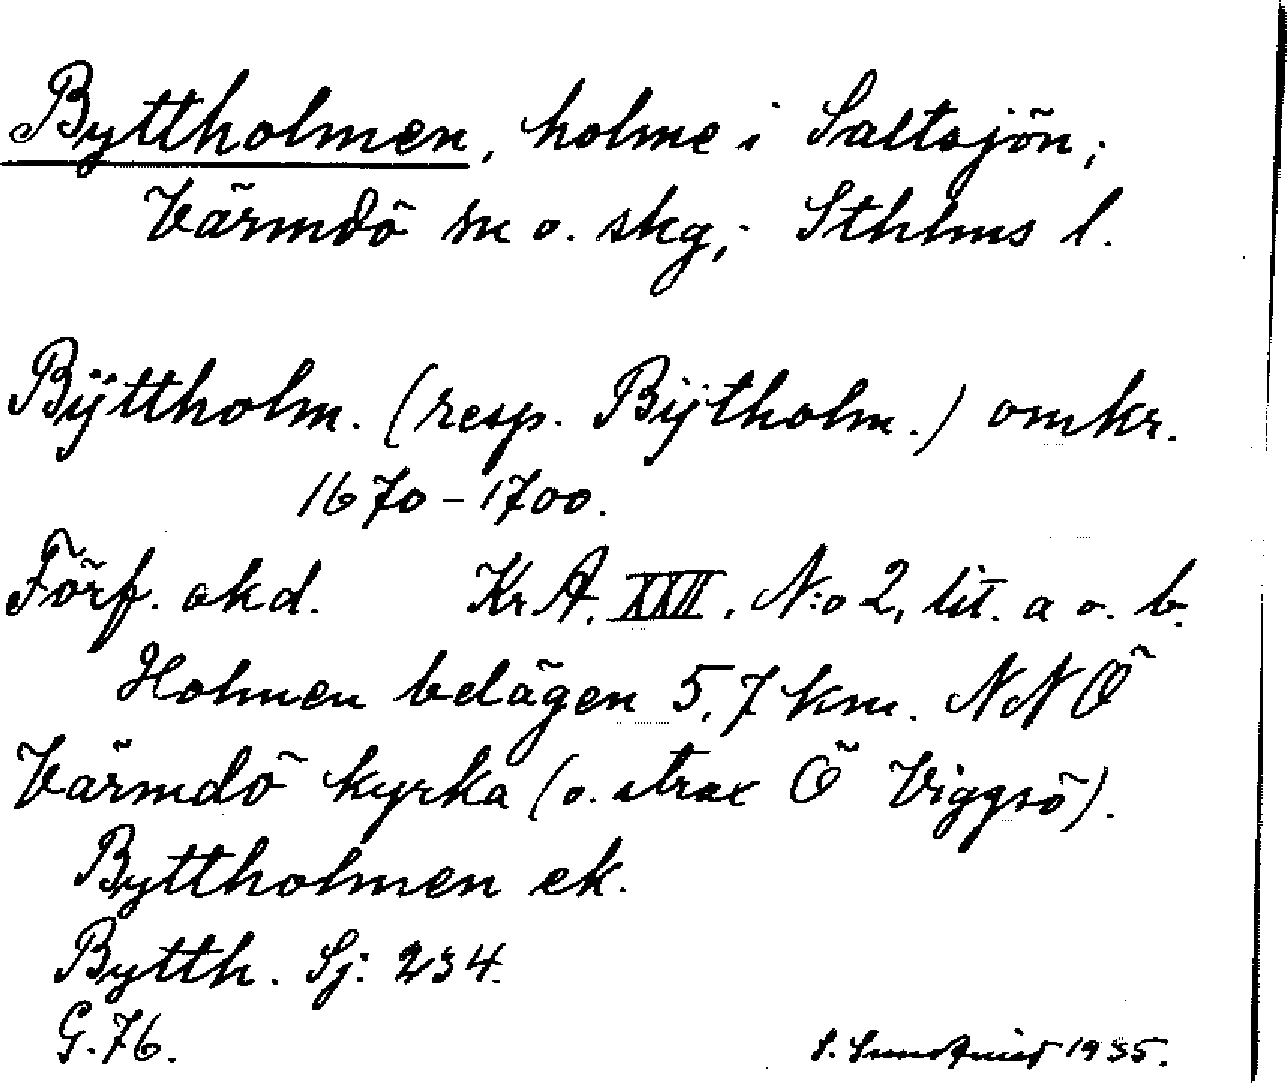 Byttholmen, holme i Saltsjön;
Värmdö sn o. skg; Sthlms l.
Bÿttholm. (resp. Bÿtholm.) omkr.
1670-1700.
Förf. okd. Kr A. XXII. N:o 2, lit. a o. b.
Holmen belägen 5,7 km. NNÖ
Värmdö kyrka (o. strax Ö Viggsö).
Byttholmen ek.
Bytth. Sj: 234.
G. 76.
1935.